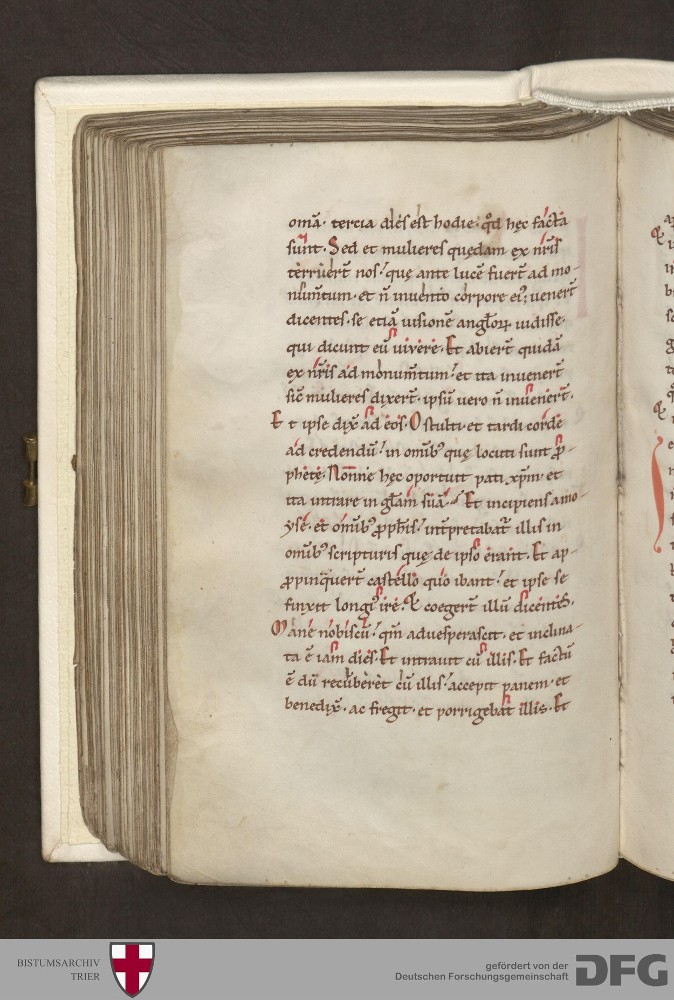 omā· tercia dies est hodie· qd̄ hęc facta
sunt· Sed et mulieres quędam ex nr̄is
terruerт̄ nos· quę ante lucē fuert̄ ad mo-
num̄tum· et n̄ inuento corpore ei᷒· uenert̄
dicentes· se etiā uisionē angl̄oꝝ uidisse·
qui dicunt eū uiuere· Et abiert̄ quidā
ex nr̄is ad monum̄tum· et ita inuenert̄
sic̄ mulieres dixert̄· ipsū uero n̄ inuenert̄·
Et ipse dix̄ ad eos· O stulti· et tardi corde
ad credendū· in omīb᷒ quę locuti sunt ꝓ-
phetę· Nonne hęc oportuit pati xp̄m· et
ita intrare in gl̄am suā· Et incipiens a mo-
yse· et omīb᷒ ꝓph̄is· int̄pretabat̄ illis in
omīb᷒ scripturis quę de ipso erant· Et ap-
ꝓpinq̄uert̄ castello quo ibant· et ipse se
finxit longi᷒ ire· Et coegert̄ illū dicentes·
Mane nobiscū· qm̄ aduesperascit· et inclina-
ta ē iam dies· Et intrauit cū illis· Et factū
ē dū recūberet cū illis· accepit panem· et
benedix̄· ac fregit· et porrigebat illis· Et
BISTUMSARCHIV
TRIER
gefördert von der
Deutschen Forschungsgemeinschaft
DFG